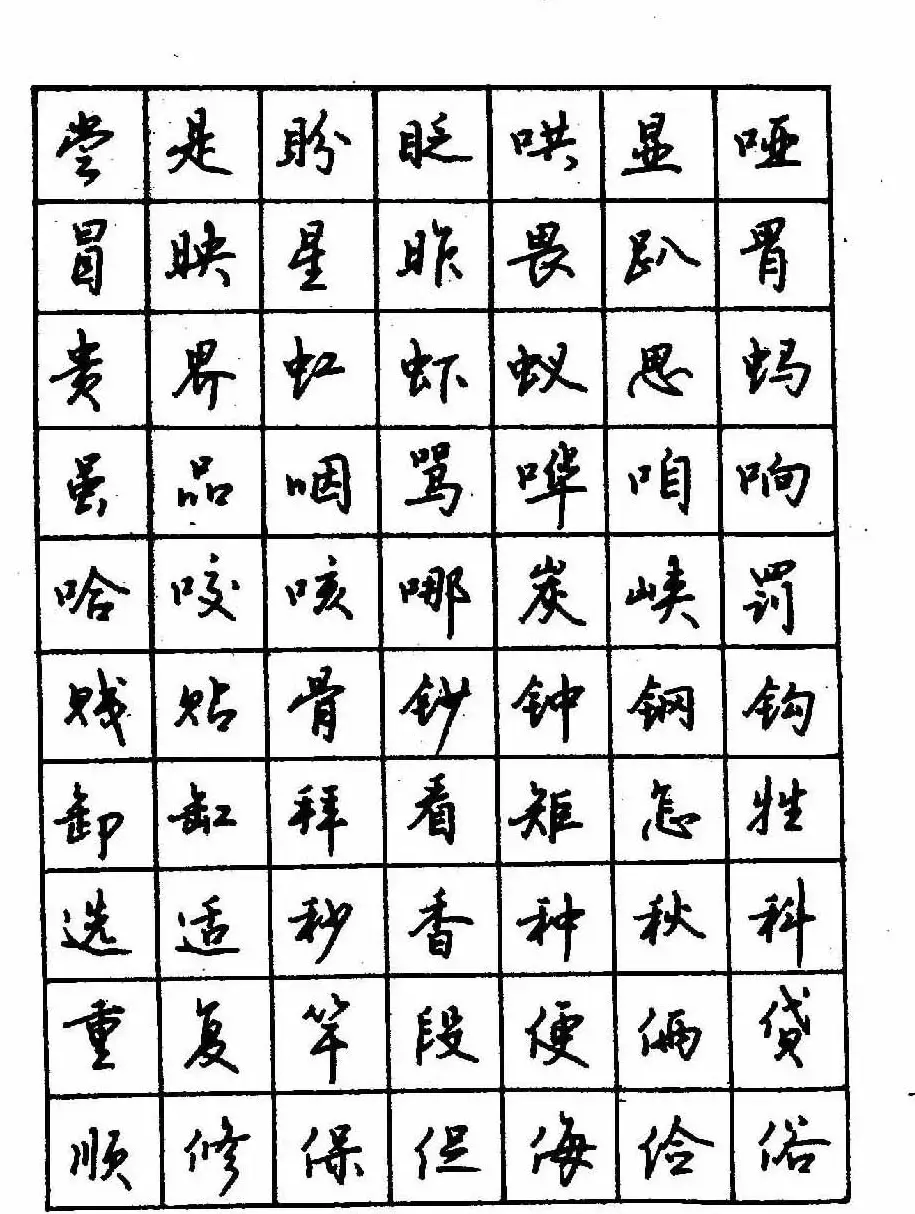 尝是盼眨哄显哑
冒映星昨畏趴胃
贵界虹虾蚁思蚂
虽品咽骂哗咱响
哈咬咳哪炭峡罚
贱贴骨钞钟钢钩
卸缸拜看矩怎牲
选适秒香种秋科
重复竿段便俩贷
顺修保促侮俭俗